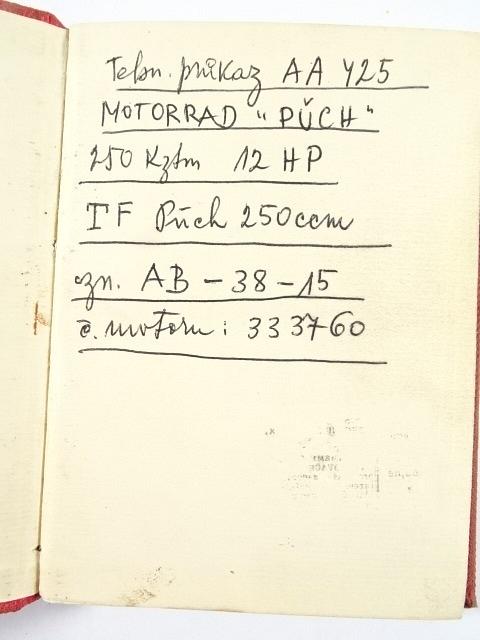 Tehn. průkaz AA 425
MOTORRAD "PŬCH"
250 Kztm 12 HP
TF Pŭch 250ccm
zn. AB - 38 - 15
č. motoru: 333760